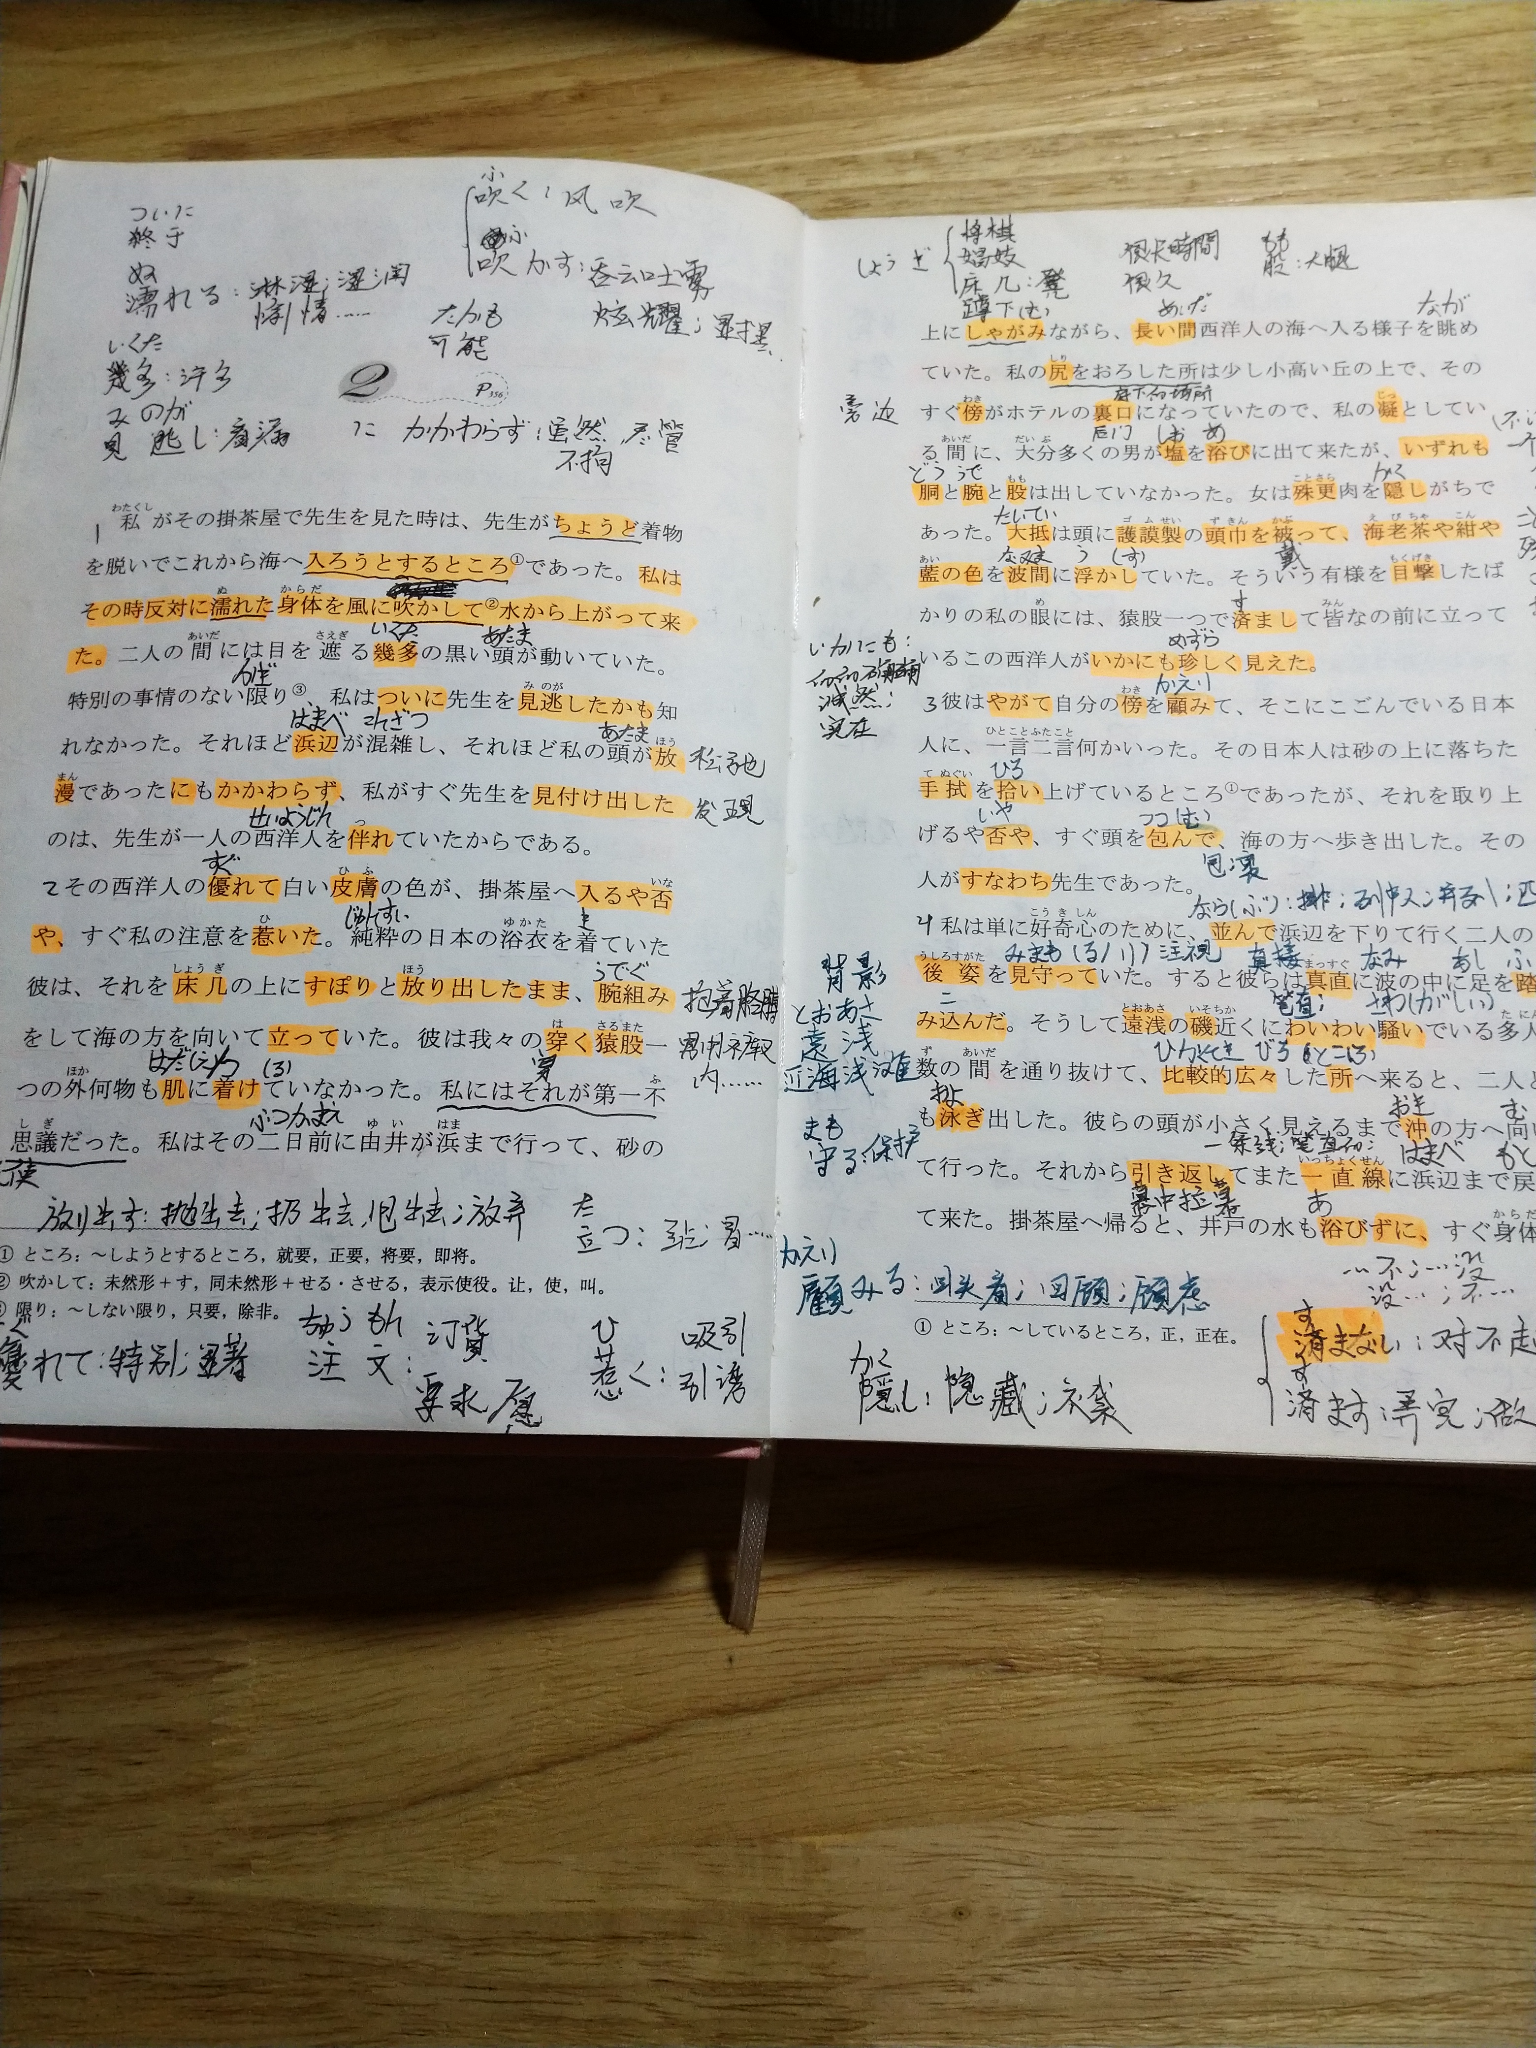 ついに
終于
ぬ
濡れる：淋湿；湿润
いくた
幾多：许多
みのが
見逃し：看漏
ふ
吹く：风吹
ふ
吹かす：吞云吐雾
炫耀；显摆
たかも
可能
2
P356
にかかわらず：虽然 尽管
不拘
わたくし
1 私がその掛茶屋で先生を見た時は、先生がちょうど着物
を脱いでこれから海へ入ろうとするところ①であった。私は
ぬ からだ
その時反対に濡れた身体を風に吹かして②水から上がって来
あいだ さえぎ いくた あたま
た。二人の間には目を遮る幾多の黒い頭が動いていた。
かぎ みのが
特別の事情のない限り③、私はついに先生を見逃したかも知
はまべ こんざつ あたま ほう
れなかった。それほど浜辺が混雑し、それほど私の頭が放
まん
漫であったにもかかわらず、私がすぐ先生を見付け出した
发现
せいようじん つ
のは、先生が一人の西洋人を伴れていたからである。
すぐ ひふ いな
2 その西洋人の優れて白い皮膚の色が、掛茶屋へ入るや否
ひ じゅんすい ゆかた き
や、すぐ私の注意を惹いた。純粋の日本の浴衣を着ていた
しょうぎ ほう うでぐ
彼は、それを床几の上にすぽりと放り出したまま、腕組み
抱着胳膊
は さるまた
をして海の方を向いて立っていた。彼は我々の穿く猿股一
男用衬裤
内……
ほか はだ (る) 穿
つの外何物も肌に着けていなかった。私にはそれが第一不
しぎ ふつかまえ ゆい はま
思議だった。私はその二日前に由井が浜まで行って、砂の
放り出す：抛出去；扔出去；放弃
た
立つ：站；冒……
① ところ：～しようとするところ，就要，正要，将要，即将。
② 吹かして：未然形＋す，同未然形＋せる・させる，表示使役。让，使，叫。
限り：～しない限り，只要，除非。
優れて：特别；显著
ちゅうもん
注文：订货
要求 愿
ひ
惹く：吸引
引诱
しょうぎ
将棋
娼妓
床几：凳
蹲下(む)
很长時間
很久
もも
股：大腿
めいだ なが
上にしゃがみながら、長い間西洋人の海へ入る様子を眺め
しり
ていた。私の尻をおろした所は少し小高い丘の上で、その
旁边
わき じっ
すぐ傍がホテルの裏口になっていたので、私の凝としてい
あいだ だいぶ 后门 しお
る間に、大分多くの男が塩を浴びに出て来たが、いずれも
どう うで もも ことさら かく
胴と腕と股は出していなかった。女は殊更肉を隠しがちで
たいてい ゴムせい ずきん かぶ えびちゃ こん
あった。大抵は頭に護謨製の頭巾を被って、海老茶や紺や
あい なみま う (す) 戴 もくげき
藍の色を波間に浮かしていた。そういう有様を目撃したば
め す みん
かりの私の眼には、猿股一つで済まして皆なの前に立って
いかにも：
めずら
いるこの西洋人がいかにも珍しく見えた。
诚然；
实在
わき かえり
3 彼はやがて自分の傍を顧みて、そこにこごんでいる日本
ひとことふたこと
人に、一言二言何かいった。その日本人は砂の上に落ちた
てぬぐい ひろ
手拭を拾い上げているところ①であったが、それを取り上
いや つつ(む)
げるや否や、すぐ頭を包んで、海の方へ歩き出した。その
包；裹
人がすなわち先生であった。
こうきしん
4 私は単に好奇心のために、並んで浜辺を下りて行く二人の
うしろすがた みまも 注視 直接 まっすぐ なみ あし ふ
後姿を見守っていた。すると彼らは真直に波の中に足を踏
背影
こ とおあさ いそちか 笔直； さわ(がしい) たにん
み込んだ。そうして遠浅の磯近くにわいわい騒いでいる多人
とおあさ
遠浅
近海浅滩
ず あいだ ひかくてき びろ (ところ)
数の間を通り抜けて、比較的広々した所へ来ると、二人と
およ おき む
も泳ぎ出した。彼らの頭が小さく見えるまで沖の方へ向い
まも
守る：保护
いっちょくせん はまべ もど
て行った。それから引き返してまた一直線に浜辺まで戻
あ からだ
て来た。掛茶屋へ帰ると、井戸の水も浴びずに、すぐ身体
かえり
顧みる：回头看；回顾；顾虑
…不；…没
没…；不…
① ところ：～しているところ，正，正在。
かく
隠し：隐藏；衣袋
す
済まない：对不起
す
済ます：弄完；做